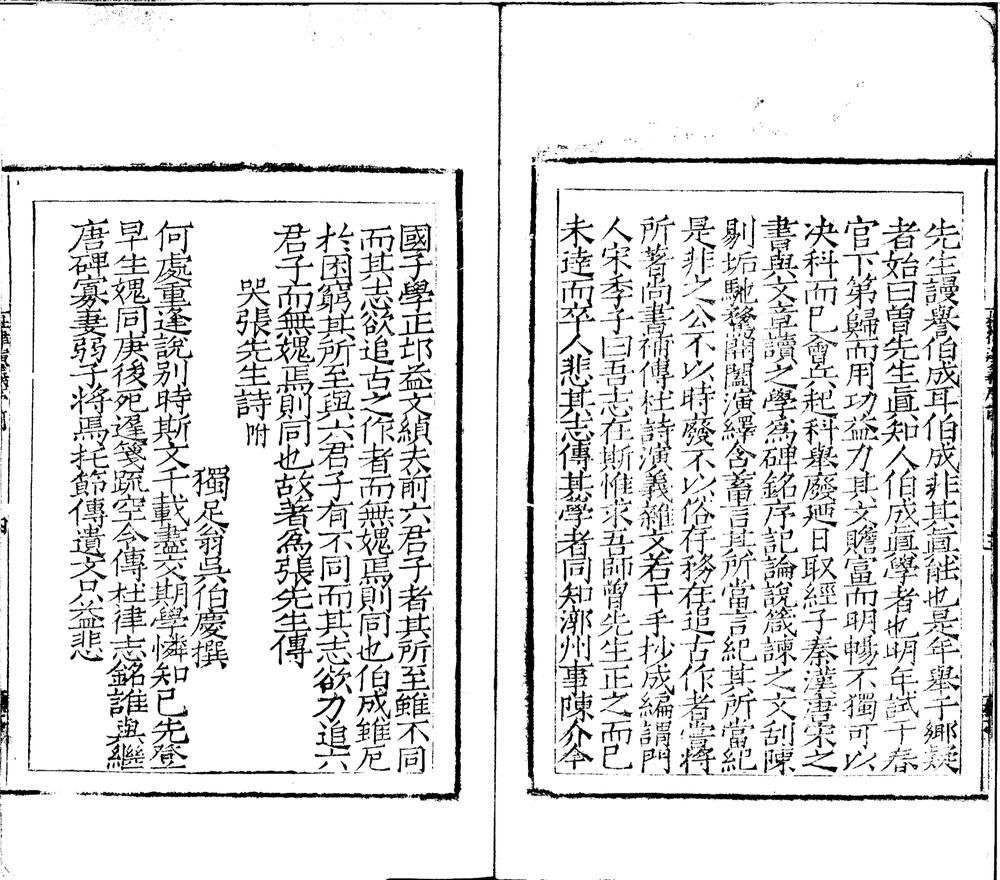 先生謾譽伯成耳伯成非其眞能也是年舉子鄉疑
者始曰曾先生眞知人伯成眞學者也明年試于春
官下第歸而用功益力其文贍富而明暢不獨可以
决科而已會兵起科舉廢廼日取經子秦漢唐宋之
書與文章讀之學爲碑銘序記論說箴諫之文刮陳
剔垢馳騖開闔演繹含畜言其所當言紀其所當紀
是非之公不以時廢不以俗存務在追古作者嘗將
所著尚書補傳杜詩演義雜文若干手抄成編謂門
人宋季子曰吾志在斯惟求吾師曾先生正之而已
未逹而卒人悲其志傳其學者同知漷州事陳介今
國子學正邱益文縝夫前六君子者其所至雖不同
而其志欲追古之作者而無媿焉則同也伯成雖厄
扵困窮其所至與六君子有不同而其志欲力追六
君子而無媿焉則同也故著爲張先生傳
哭張先生詩附
獨足翁吳伯慶撰
何處重逢說别時斯文千載盡交期學憐知已先登
早生媿同庚後死遲箋疏空令傳杜律志銘誰與繼
唐碑寡妻弱子將焉托節傳遺文只益悲